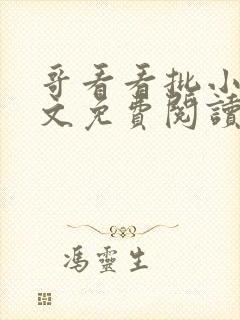 哥看看批小
文免費閱讀
馮靈生